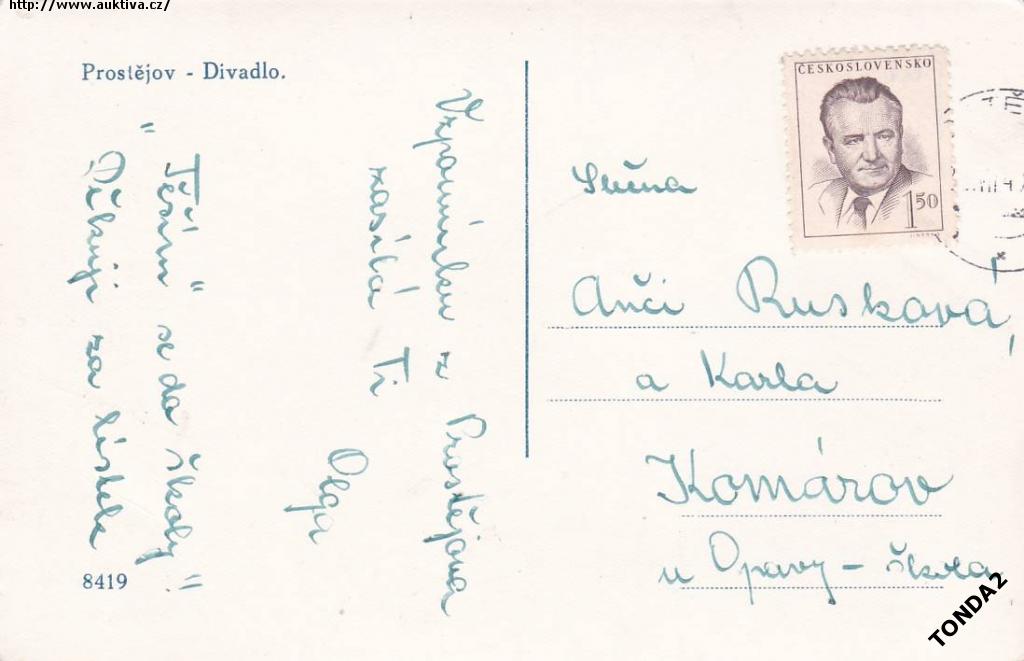 http://www.auktiva.cz/
Prostějov - Divadlo.
Vzpomínku z Prostějova
zasílá Ti
Olga
"Těším" se do školy"
Děkuji za lístek
8419
ČESKOSLOVENSKO
1 50
Slečna
Anči Rusková,
a Karla
Komárov
u Opavy - škola
TONDA2